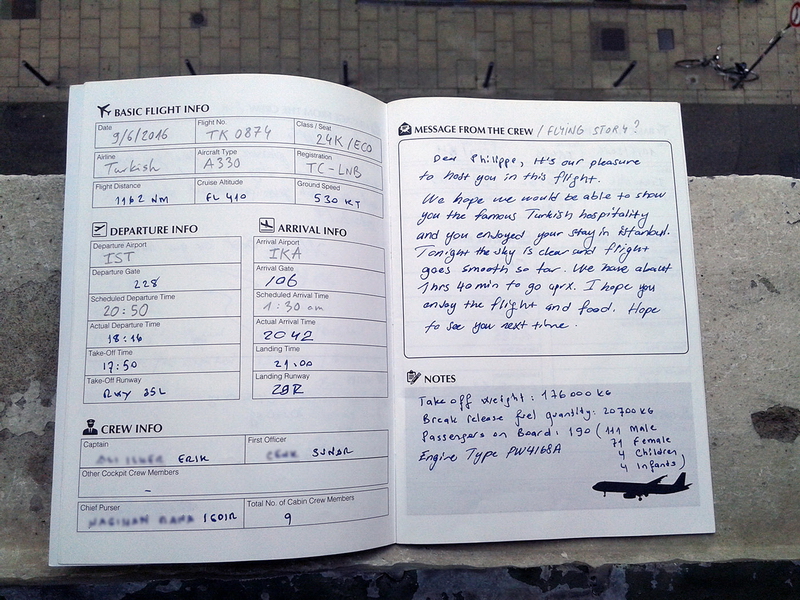 BASIC FLIGHT INFO
Date Flight No. Class / Seat
9/6/2016 TK 0874 24K/ECO
Airline Aircraft Type Registration
Turkish A330 TC-LNB
Flight Distance Cruise Altitude Ground Speed
1162 NM FL 410 530 KT
DEPARTURE INFO
Departure Airport
IST
Departure Gate
228
Scheduled Departure Time
20:50
Actual Departure Time
18:16
Take-Off Time
17:50
Take-Off Runway
Rwy 35L
ARRIVAL INFO
Arrival Airport
IKA
Arrival Gate
106
Scheduled Arrival Time
1:30 am
Actual Arrival Time
2042
Landing Time
21:00
Landing Runway
29R
CREW INFO
Captain First Officer
ERIK SUNAR
Other Cockpit Crew Members
-
Chief Purser Total No. of Cabin Crew Members
9
MESSAGE FROM THE CREW / FLYING STORY?
Dear Philippe, It's our pleasure
to host you in this flight.
We hope we would be able to show
you the famous Turkish hospitality
and you enjoyed your stay in Istanbul.
Tonight the sky is clear and flight
goes smooth so far. We have about
1 hrs 40 min to go aprx. I hope you
enjoy the flight and food. Hope
to see you next time.
NOTES
Take off weight: 176 000 KG
Break release fuel quantity: 20700 KG
Passengers on Board: 190 (111 Male
71 Female
4 Children
4 Infants)
Engine Type PW4168A